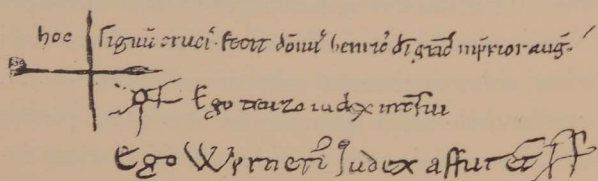 hoc signū crucis fecit dōnus henric' dī grā īnpr̄ior auḡ.
Ego iudex int̄fui
Ego Wernerī Judex affui et